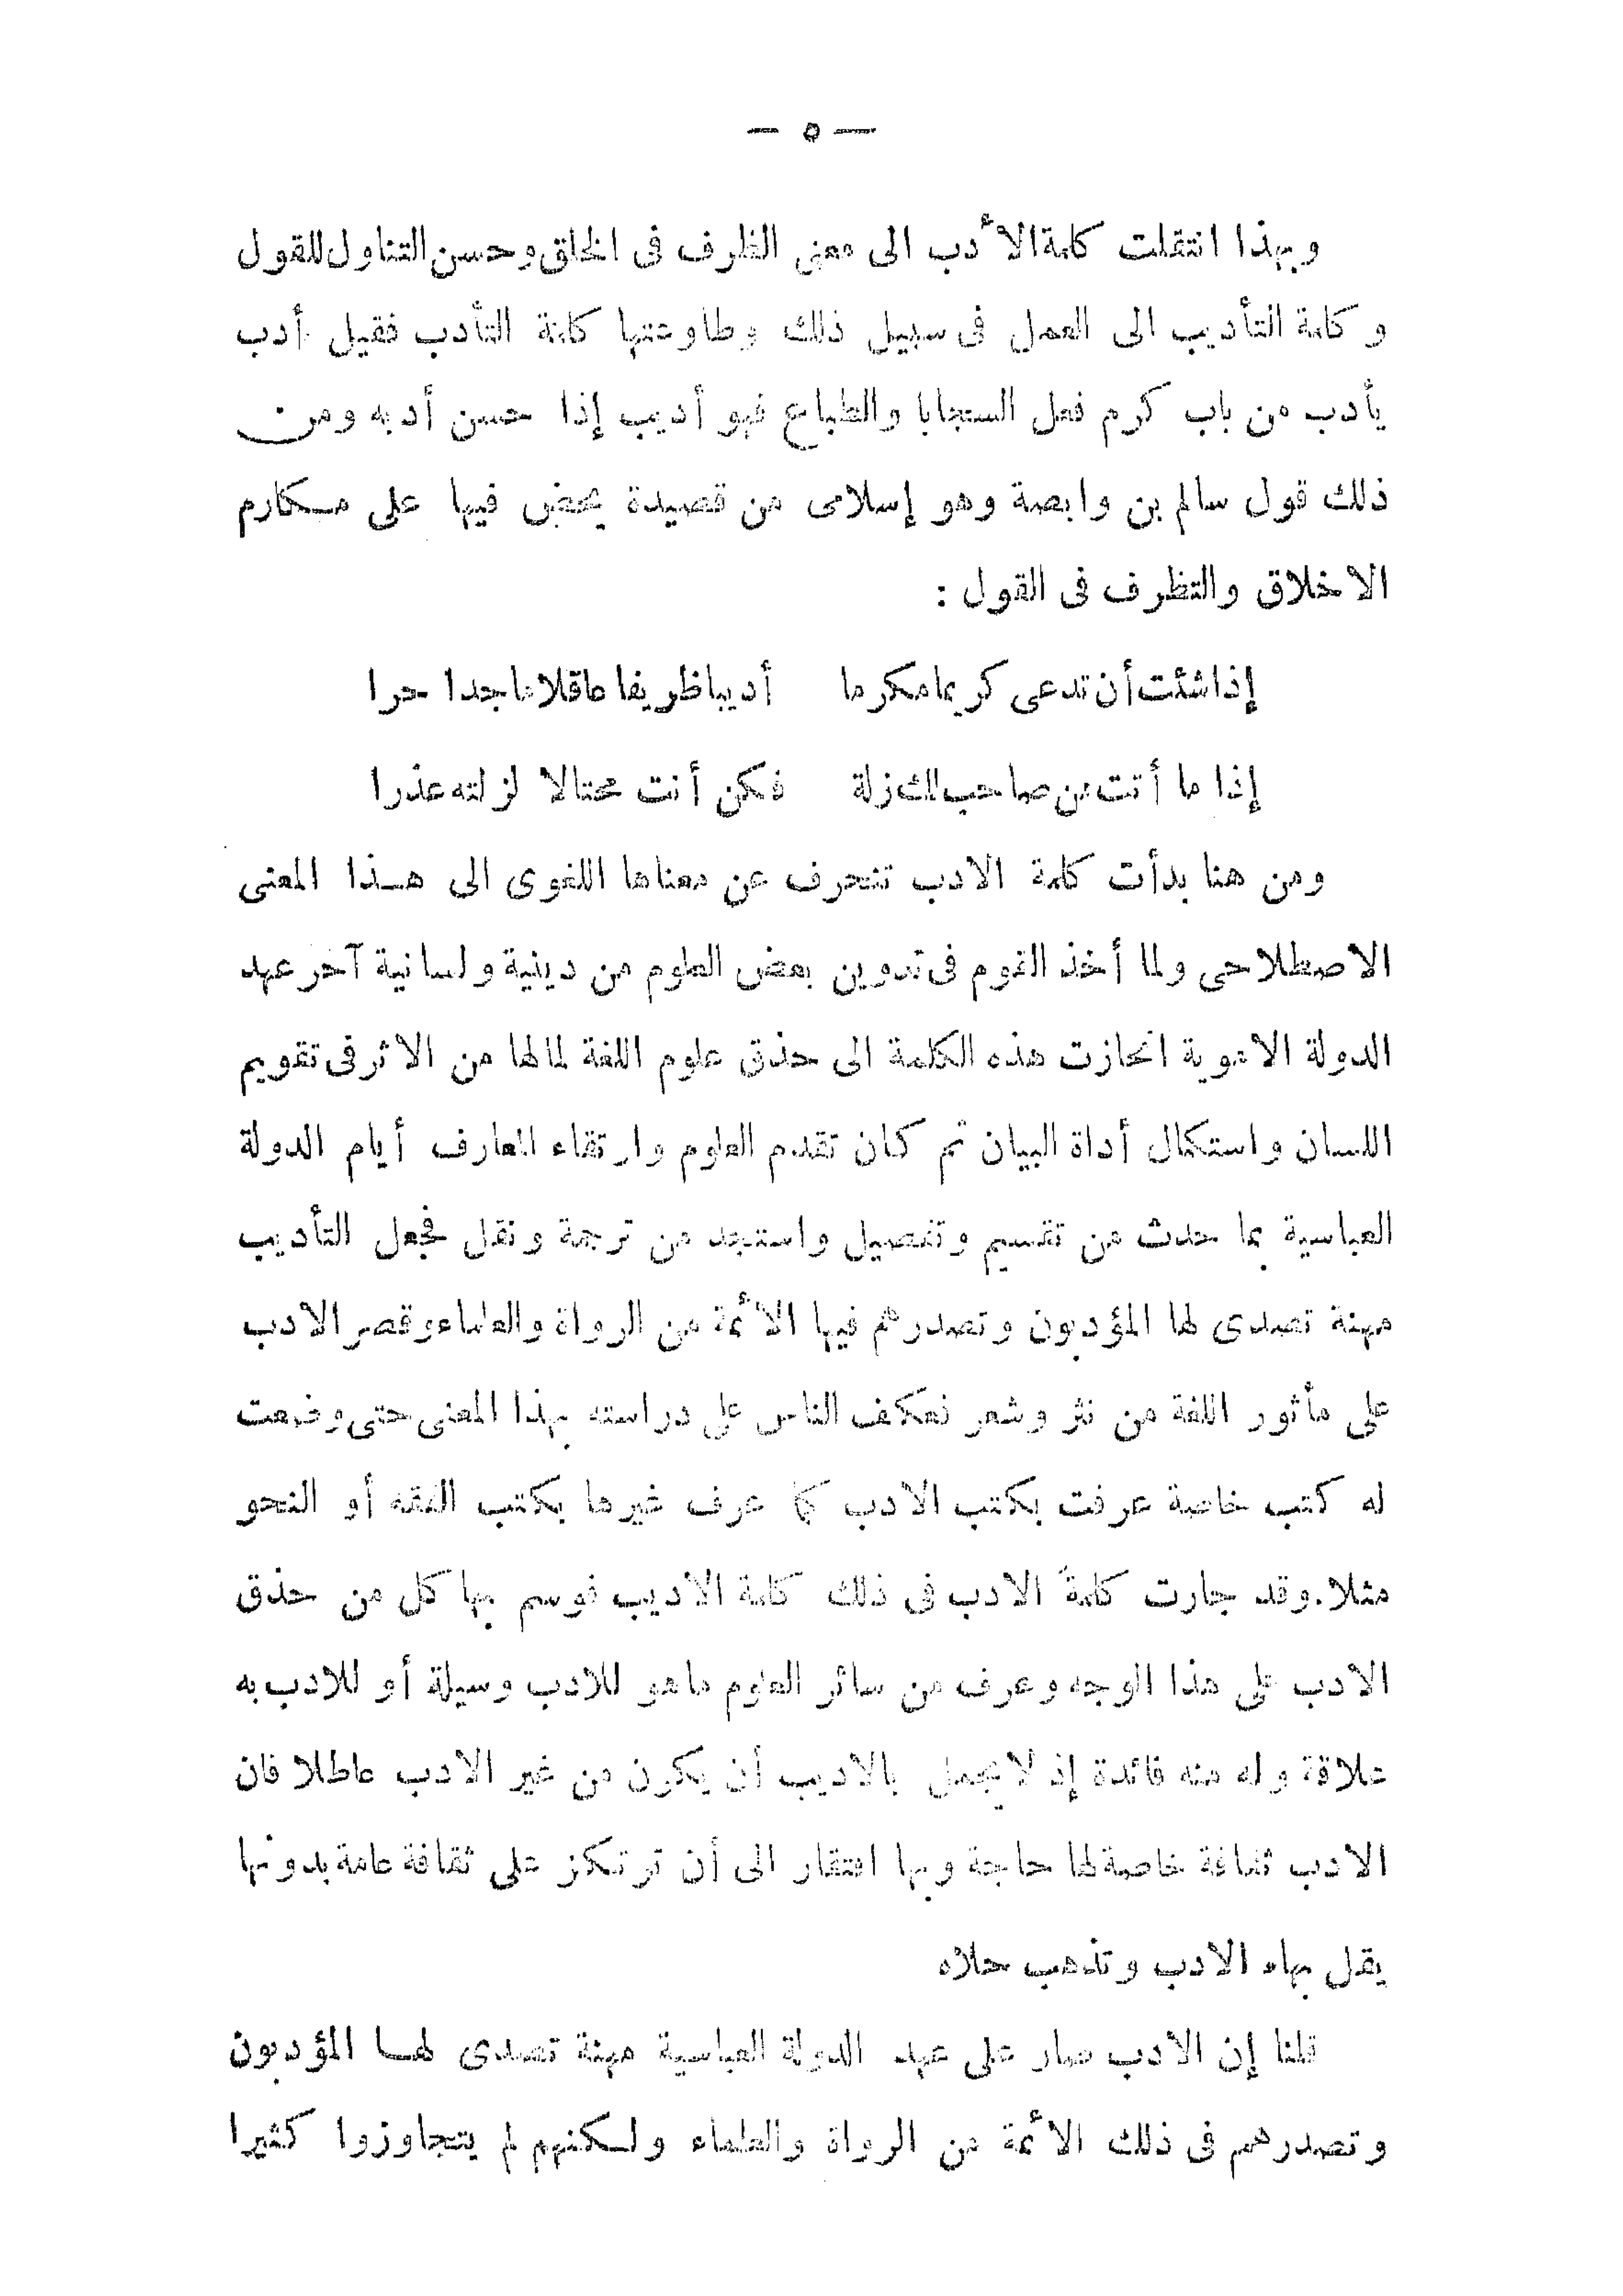 — ٥ —
وبهذا انتقلت كلمة الأدب الى معنى الظرف فى الخلق وحسن التناول للقول
وكلمة التأديب الى العمل فى سبيل ذلك وطاوعتها كلمة التأدب فقيل أدب
يأدب من باب كرم فعل السجايا والطباع فهو أديب إذا حسن أدبه ومن
ذلك قول سالم بن وابصة وهو إسلامى من قصيدة يحض فيها على مكارم
الاخلاق والتظرف فى القول :
إذا شئت أن تدعى كريما مكرما أديبا ظريفا عاقلا ماجدا حرا
إذا ما أتت من صاحب لك زلة فكن أنت محتالا لزلته عذرا
ومن هنا بدأت كلمة الادب تنحرف عن معناها اللغوى الى هذا المعنى
الاصطلاحى ولما أخذ القوم فى تدوين بعض العلوم من دينية ولسانية آخر عهد
الدولة الاموية انحازت هذه الكلمة الى حذق علوم اللغة لمالها من الاثر فى تقويم
اللسان واستكمال أداة البيان ثم كان تقدم العلوم وارتقاء المعارف أيام الدولة
العباسية بما حدث من تقسيم وتفصيل واستجد من ترجمة ونقل فجعل التأديب
مهنة تصدى لها المؤدبون وتصدرهم فيها الأئمة من الرواة والعلماء وقصر الادب
على مأثور اللغة من نثر وشعر فعكف الناس على دراسته بهذا المعنى حتى وضعت
له كتب خاصة عرفت بكتب الادب كما عرف غيرها بكتب الفقه أو النحو
مثلا. وقد جارت كلمة الادب فى ذلك كلمة الاديب فوسم بها كل من حذق
الادب على هذا الوجه وعرف من سائر العلوم ماهو للادب وسيلة أو للادب به
علاقة وله منه فائدة إذ لا يجمل بالاديب أن يكون من غير الادب عاطلا فان
الادب ثقافة خاصة لها حاجة وبها افتقار الى أن ترتكز على ثقافة عامة بدونها
يقل بهاء الادب وتذهب حلاه
قلنا إن الادب صار على عهد الدولة العباسية مهنة تصدى لها المؤدبون
وتصدرهم فى ذلك الأئمة من الرواة والعلماء ولكنهم لم يتجاوزوا كثيرا